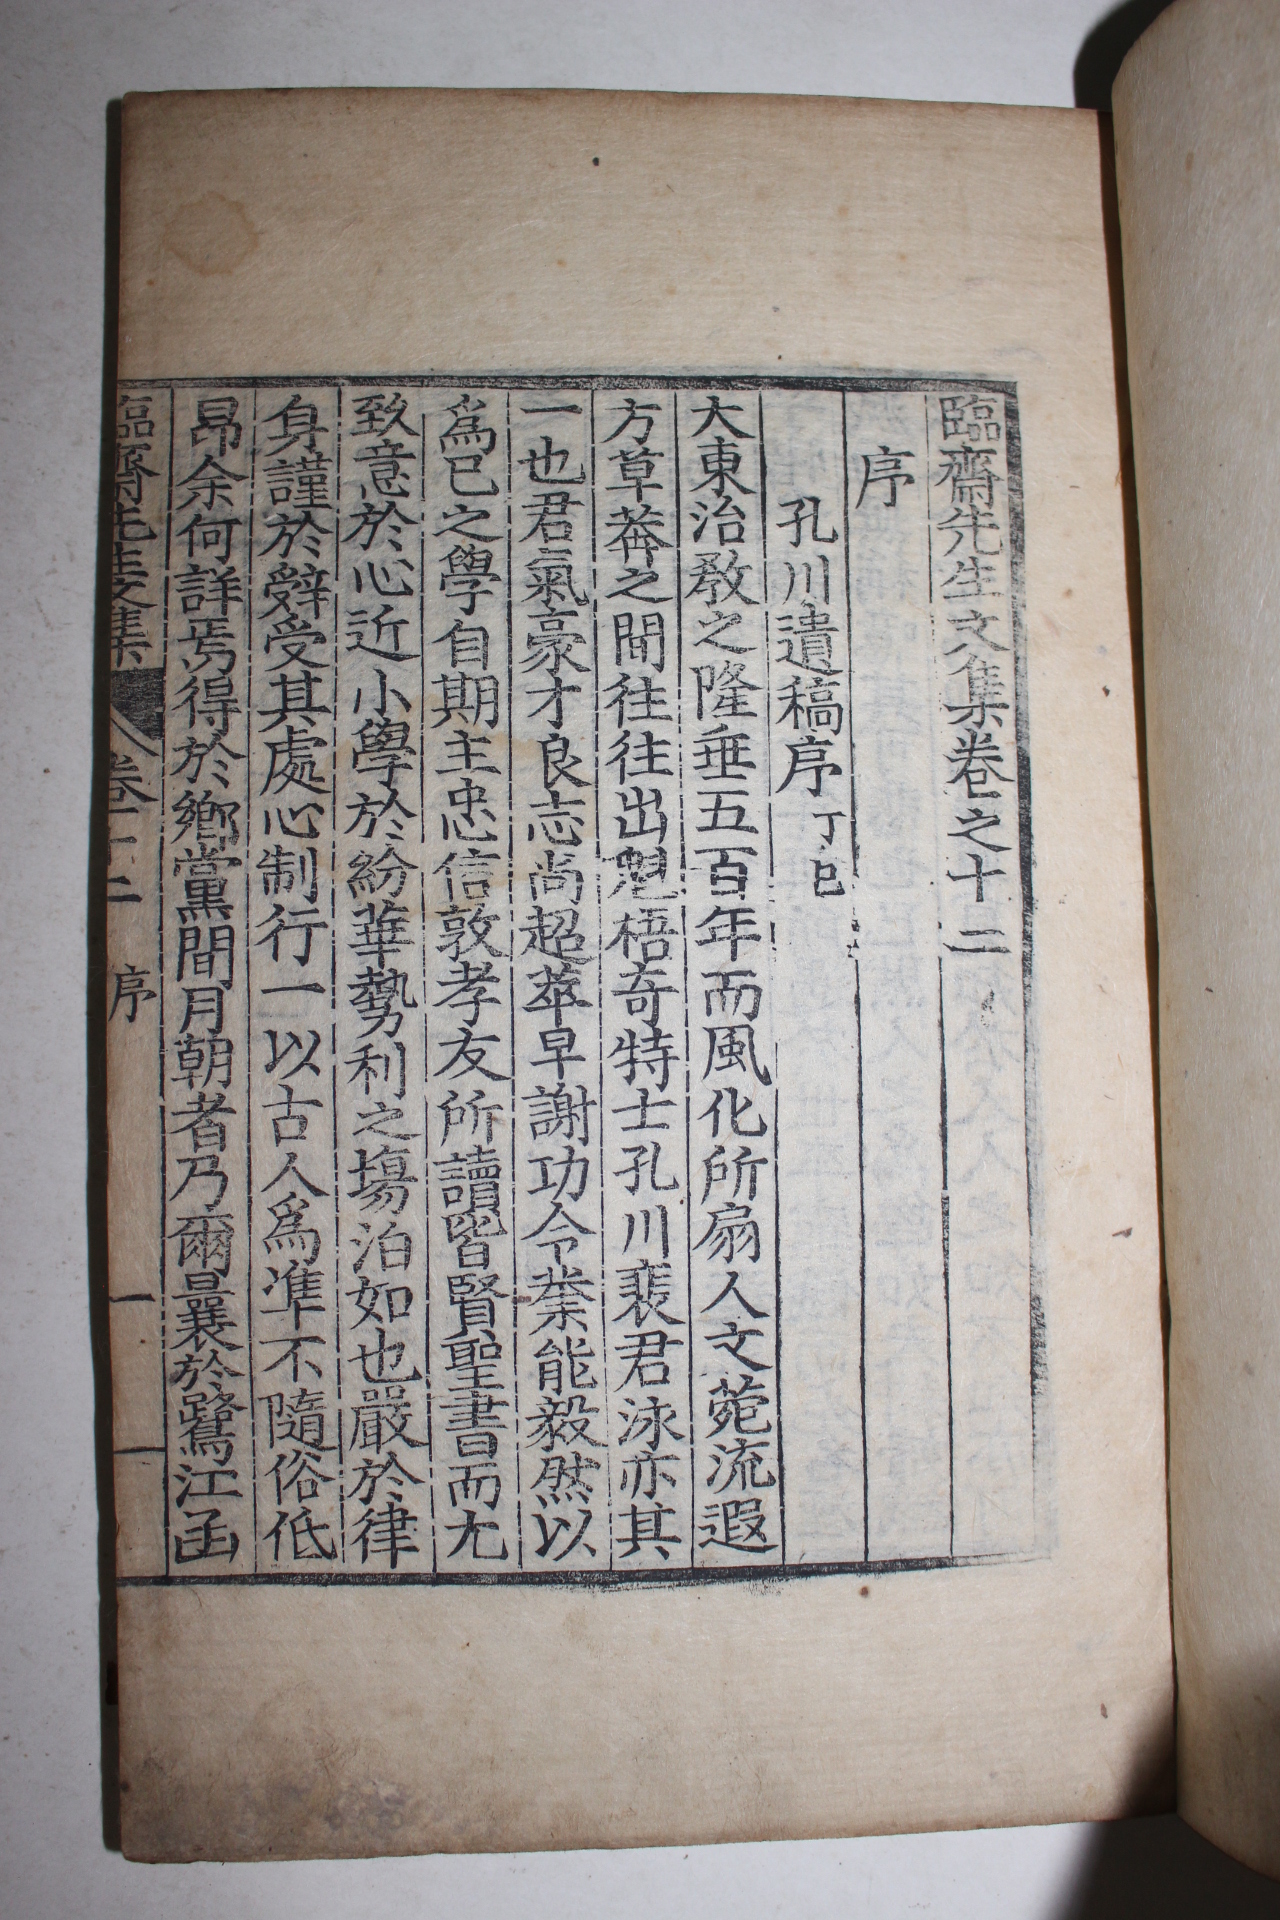 臨齋先生文集卷之十二
序
孔川遺稿序 丁巳
大東治敎之隆垂五百年而風化所扇人文菀流遐
方草莽之間往往出魁梧奇特士孔川裵君泳亦其
一也君氣豪才良志尚超萃早謝功令業能毅然以
爲已之學自期主忠信敦孝友所讀皆賢聖書而尤
致意於心近小學於紛華勢利之塲泊如也嚴於律
身謹於辭受其處心制行一以古人爲準不隨俗低
昂余何詳焉得於鄕黨間月朝者乃爾曩於鷺江函
臨齋先生文集 卷十二 序 一